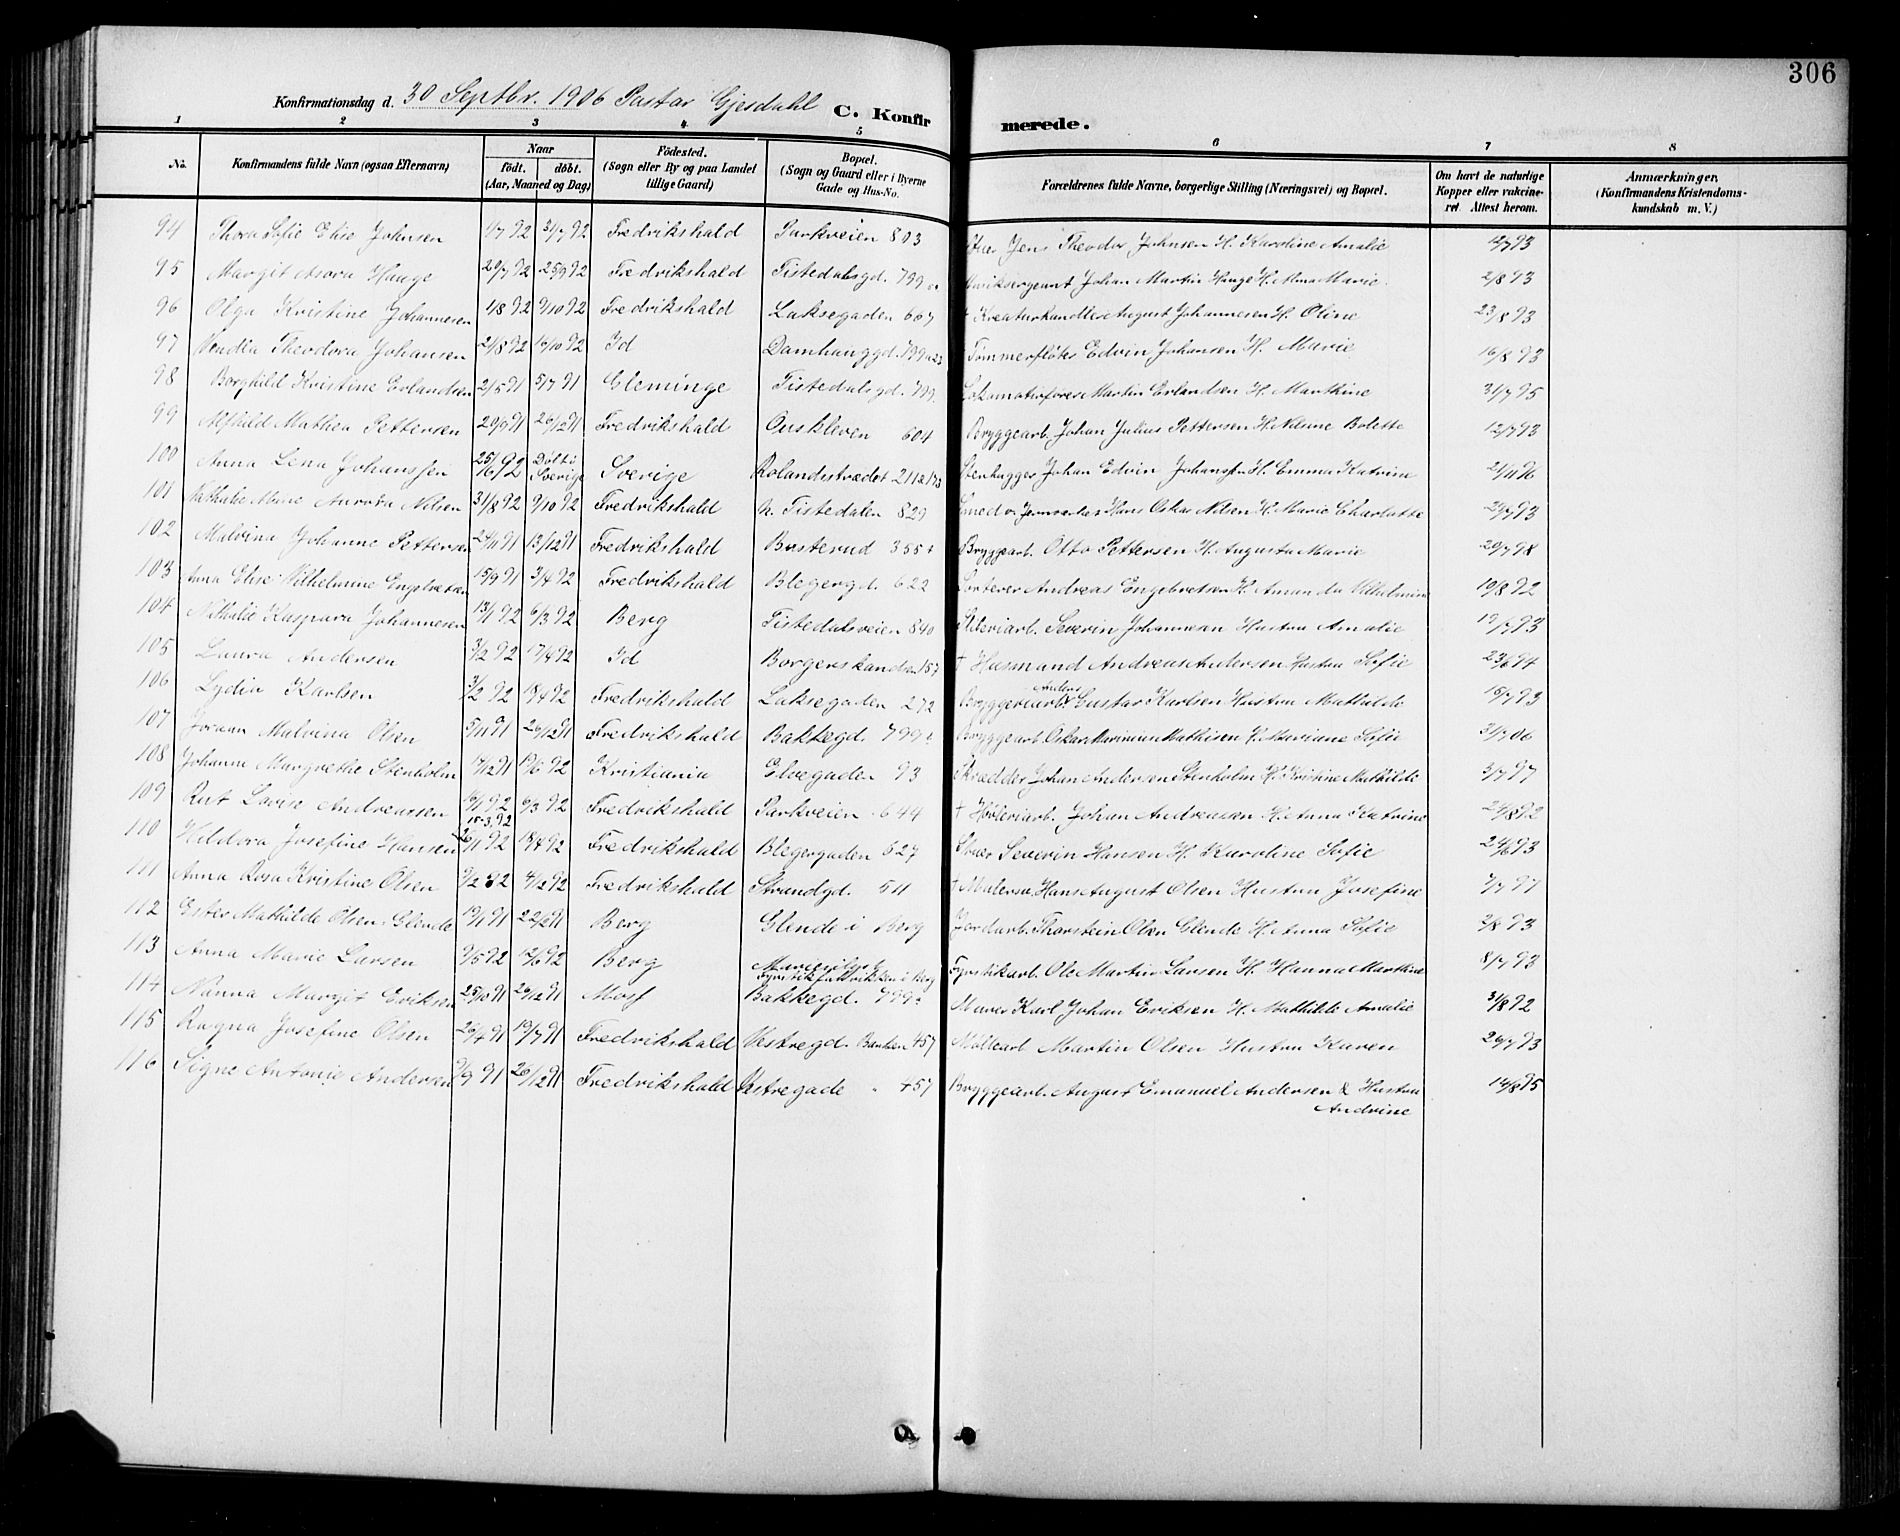 306
Konfirmationsdag d. 30 Septbr. 1906 Pastor Gjesdahl C. Konfirmerede.
1 2 3 4 5 6 7 8
No. Konfirmandens fulde Navn (ogsaa Efternavn) Naar födt. döbt. (Aar, Maaned og Dag) Födested. (Sogn eller By og paa Landet tillige Gaard) Bopæl. (Sogn og Gaard eller i Byerne Gade og Hus-No. Forældrenes fulde Navne, borgerlige Stilling (Næringsvei) og Bopæl. Om havt de naturlige Kopper eller vakcineret. Attest herom. Anmærkninger, (Konfirmandens Kristendomskundskab m. V.)
94 Thora Sofie Elise Johnsen 1/7 92 31/7 92 Fredrikshald Parkveien 803 Jens Theodor Johnsen H. Karoline Amalie 12/7 93
95 Margit Asora Hauge 29/7 92 25/9 92 Fredrikshald Tistedalsgd. 799 Johan Martin Hauge H. Alma Marie 2/8 93
96 Olga Kristine Johannesen 1/8 92 9/10 92 Fredrikshald Laksegaden 667 † Kreaturhandler August Johannesen H. Oline 23/8 93
97 Vendla Theodora Johansen 21/8 92 16/10 92 Id Damhauggd. 799 a 23 Tømmerfløter Edvin Johansen H. Marie 16/8 93
98 Borghild Kristine Erlandsen 2/5 91 5/7 91 Gleminge Tistedalsgd. 799 Lokomotivfører Martin Erlandsen H. Marthine 31/7 95
99 Alfhild Mathea Pettersen 29/9 91 26/12 91 Fredrikshald Ouskleven 604 Bryggearb. Johan Julius Pettersen H. Nilsine Bolette 12/7 93
100 Anna Lena Johanssen 25/6 92 Döbt i Sverige Sverige Rolandsstrædet 211 Stenhugger Johan Edvin Johanssen H. Emma Katrine 21/11 96
101 Nathalie Marie Aurora Nilsen 31/8 92 9/10 92 Fredrikshald n. Tistedalen 829 Smed v. Jernverket Hans Oskar Nilsen H. Marie Charlotte 25/7 93
102 Malvina Johanne Pettersen 24/11 91 13/12 91 Fredrikshald Busterud 355 Bryggearb. Otto Pettersen H. Augusta Marie 29/7 98
103 Anna Elise Vilhelmine Engebretsen 15/9 91 3/4 92 Fredrikshald Blegergd. 622 Sorterer Andreas Engebretsen H. Amanda Vilhelmine 19/8 92
104 Nathalie Kaspara Johannesen 13/1 92 6/3 92 Berg Tistedalsveien 840 Sliberiarb. Severin Johannesen Hustru Amalie 19/7 93
105 Laura Andersen 3/2 92 17/4 92 Id Borgerskandsen 157 † Husmand Andreas Andersen Hustru Sofie 23/6 94
106 Lydia Karlsen 3/2 92 18/4 92 Fredrikshald Laksegaden 272 Bryggeriarb. Anders Gustav Karlsen Hustru Mathilde 15/7 93
107 Joraan Malvina Olsen 5/11 91 26/12 91 Fredrikshald Bakkegd. 799 Bryggearb. Oskar Marinius Mathisen H. Mariane Sofie 31/7 06
108 Johanne Margrethe Stenholm 17/12 91 19/6 92 Kristiania Elvegaden 93 Skrædder Johan Andersen Stenholm H. Kristine Mathilde 3/7 97
109 Rut Lovise Andreassen 16/1 92 6/3 92 Fredrikshald Parkveien 644 † Høvleriarb. Johan Andreassen H. Anna Katrine 24/8 92
15-3.92
110 Hildora Josefine Hansen 26/1 92 18/4 92 Fredrikshald Blegergaden 627 Stuer Severin Hansen H. Karoline Sofie 24/6 93
111 Anna Rosa Kristine Olsen 9/2 92 4/12 92 Fredrikshald Strandgd. 511 † Malersv. Hans August Olsen Hustru Josefine 7/7 97
112 Ester Mathilde Olsen Glende 19/1 91 22/2 91 Berg Glende i Berg Jordarb. Thorstein Olsen Glende H. Anna Sofie 2/8 93
113 Anna Marie Larsen 9/5 92 12/6 92 Berg Fyrstikfabrikken i Berg Fyrstikarb. Ole Martin Larsen H. Hanna Marthine 8/7 93
114 Nanna Margit Eriksen 25/10 91 26/12 91 Moss Bakkegd. 799 Murer Karl Johan Eriksen H. Mathilde Amalie 31/8 92
115 Ragna Josefine Olsen 26/4 91 19/7 91 Fredrikshald Vestregd. Banken 457 Møllearb. Martin Olsen Hustru Karen 26/7 93
116 Signe Antonie Andersen 9/9 91 26/12 91 Fredrikshald Vestregade " 457 Bryggearb. August Emanuel Andersen & Hustru Andrine 14/8 95